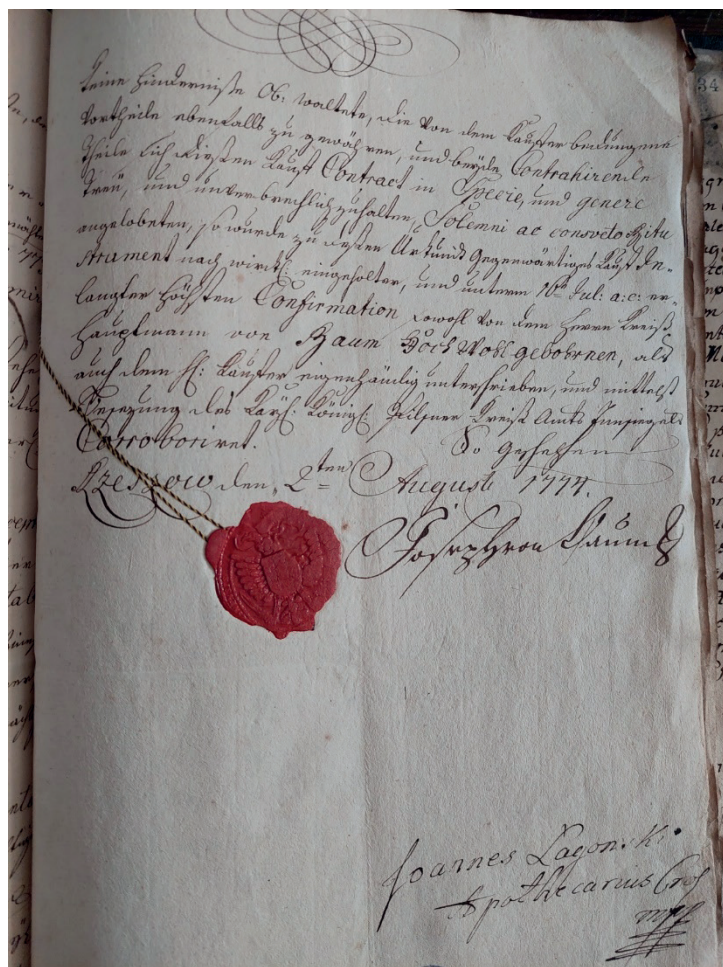 keine Hinderniße Ob: waltete, die von dem Kaufer bedungene
Vortheile ebenfalls zu gewähren, und beyde Contrahirende
Theile sich dießen Kauf Contract in Specie, und genere
treü, und unverbrechlich zuhalten, Solemni ac consveto Ritu
angelobeten, so wurde zu deßen Urkund gegenwärtiges Kauf In-
strument nach wirkl: eingeholter, und unterm 16t Jul: a: c: er-
langter höchsten Confirmation sowohl von dem Herrn Kreiß-
hauptmann von Baum Hoch Wohl gebohrnen, als
auch dem H: Kaufer eigenhändig unterschrieben, und mittelst
Beysezung des Kayl: Königl: Pilsner Kreiß Amts Innsiegels
Corroboriret. So geschehen
Rzeszow den 2ten Augusti 1774.
Joseph von Baum
Joannes Lagonski
Apothecarius
mpp
34